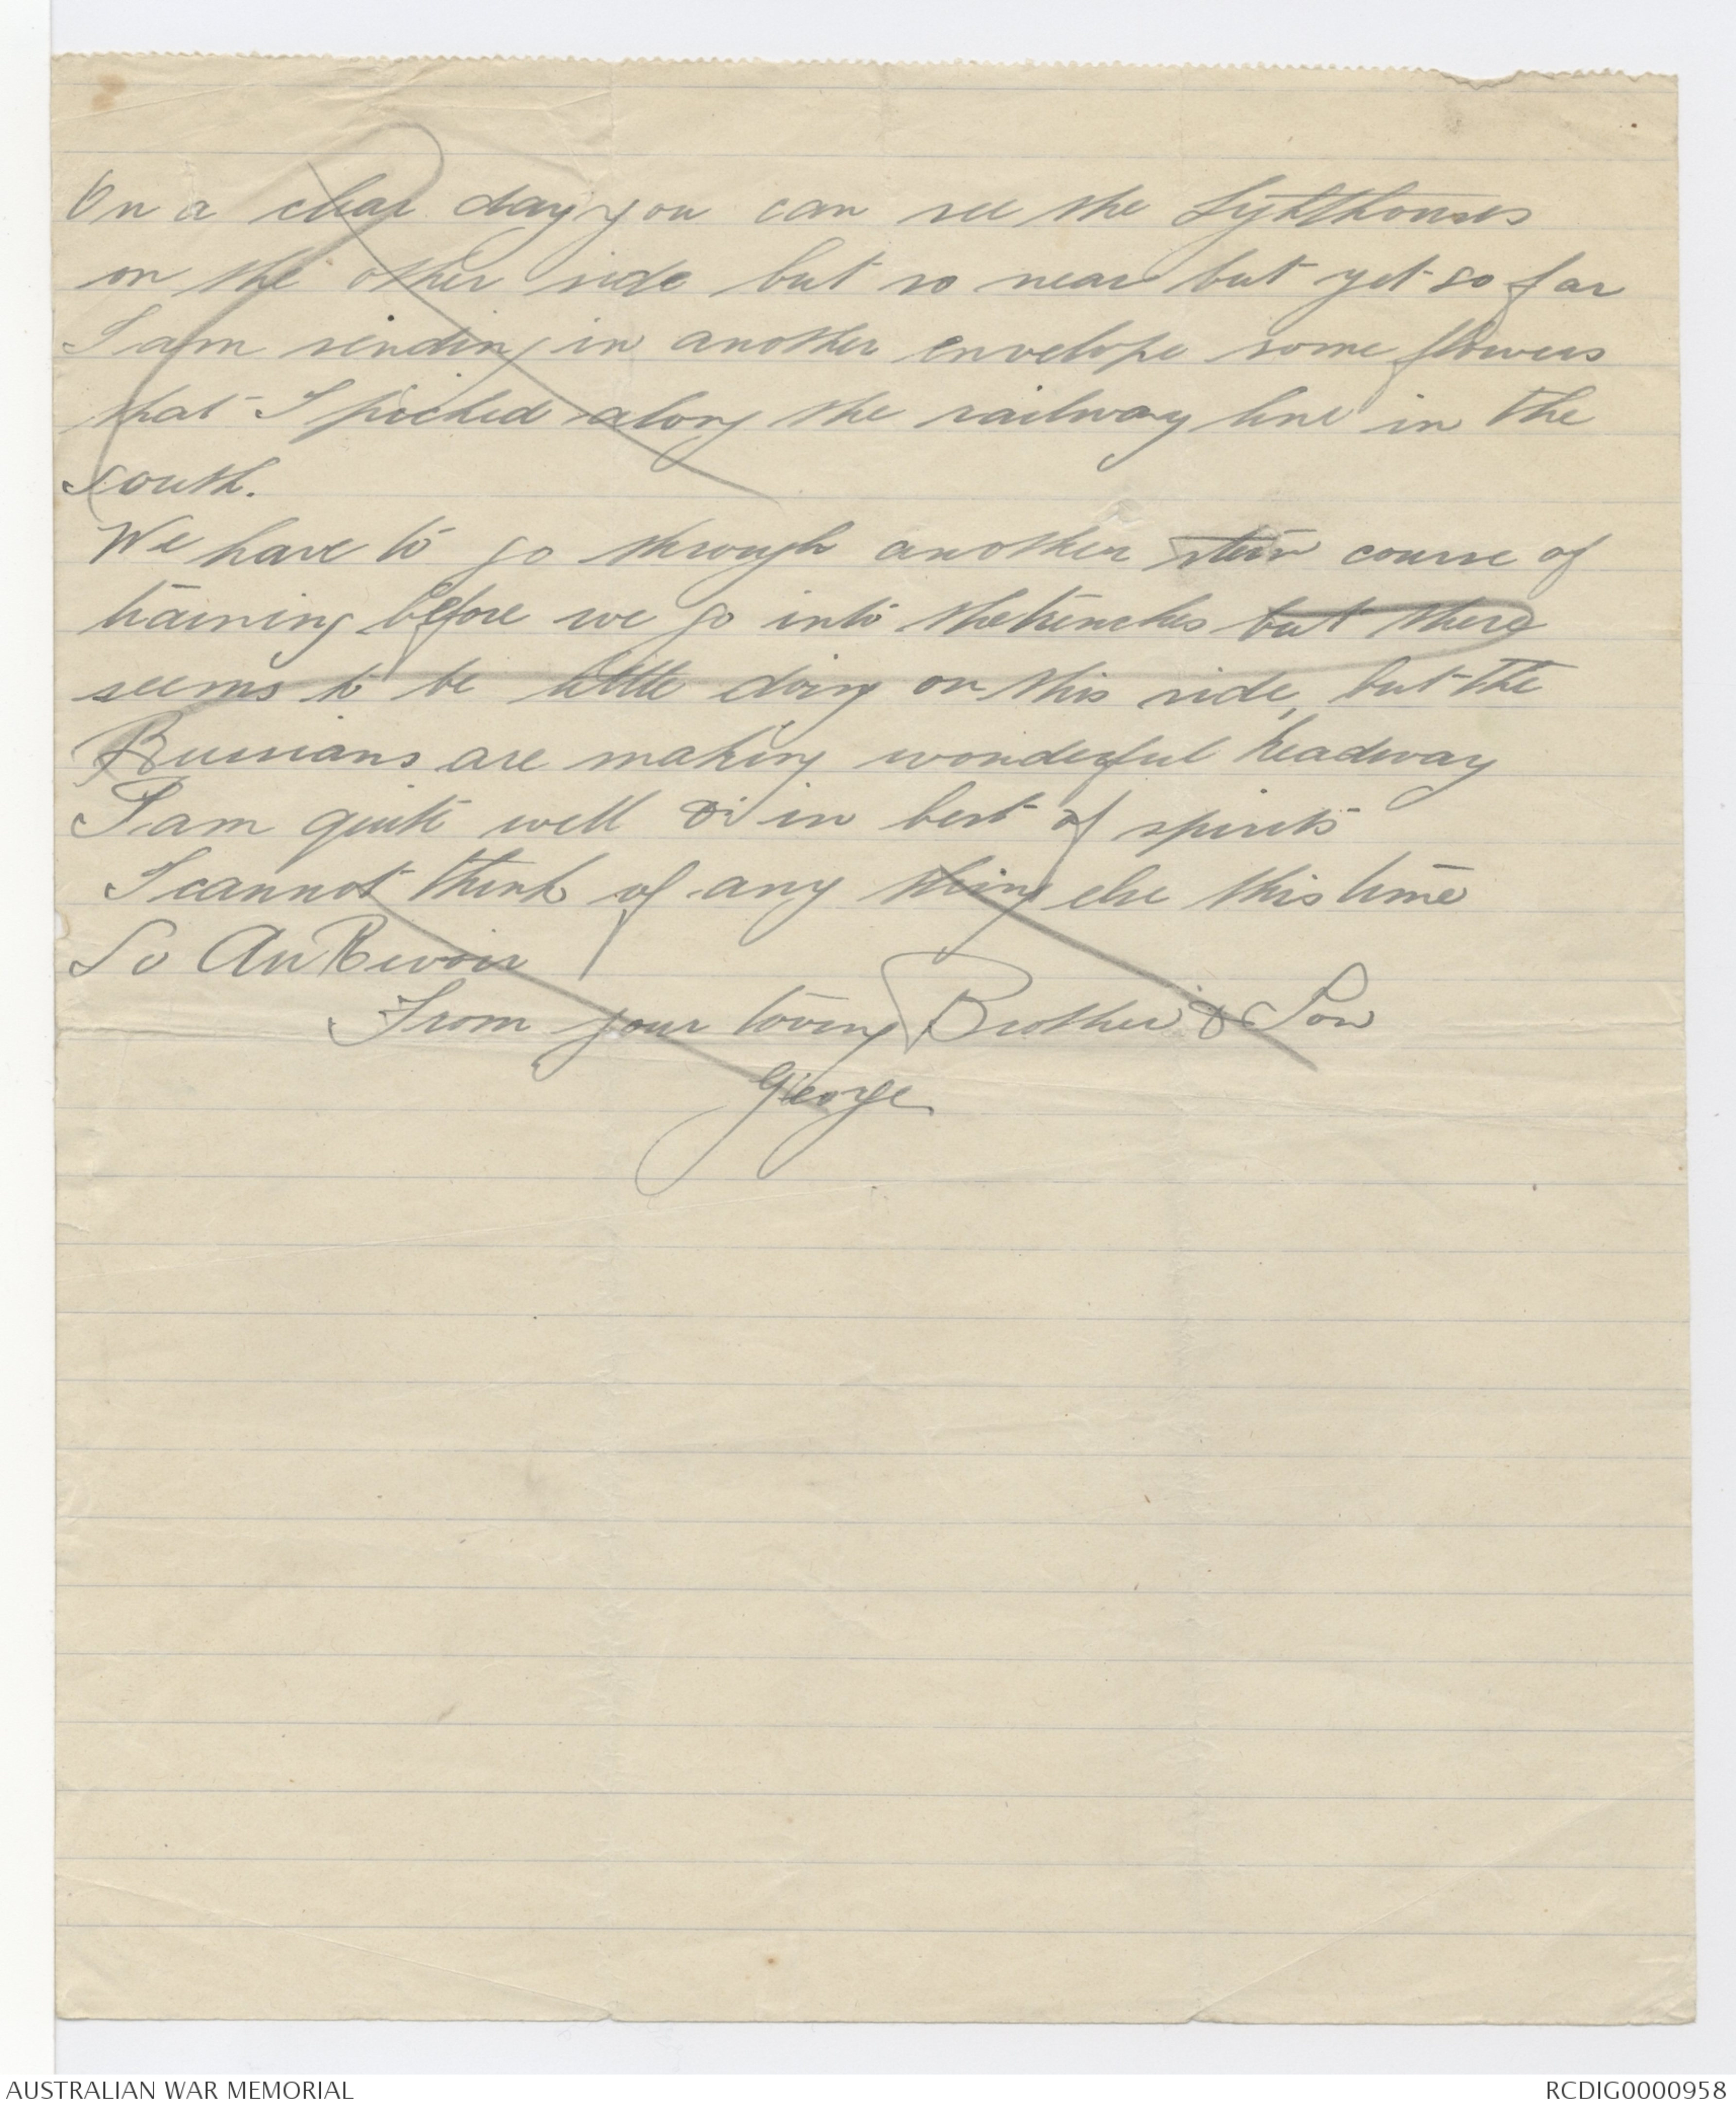 On a clear day you can see the Lighthouses
on the other side but so near but yet so far
I am sending in another envelope some flowers
that I picked along the railway line in the
south.
We have to go through another stiff course of
training before we go into the trenches but there
seems to be little doing on this side, but the
Russians are making wonderful headway
I am quite well & in best of spirits
I cannot think of any thing else this time
So Au Revoir
From your loving Brother & Son
George
AUSTRALIAN WAR MEMORIAL
RCDIG0000958